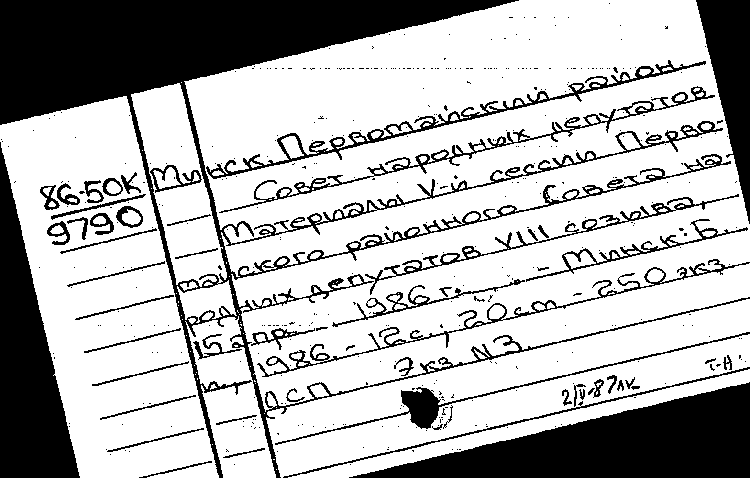 86-50К
9790
Минск. Первомайский район.
Совет народных депутатов
Материалы V-й сессии Перво-
майского районного Совета на-
родных депутатов VIII созыва,
15 апр. 1986 г. - Минск: Б.
и., 1986. - 12 с.; 20 cm. - 250 экз.
ДСП. Экз. N3.
2/IV-87 ЛК
Т-А